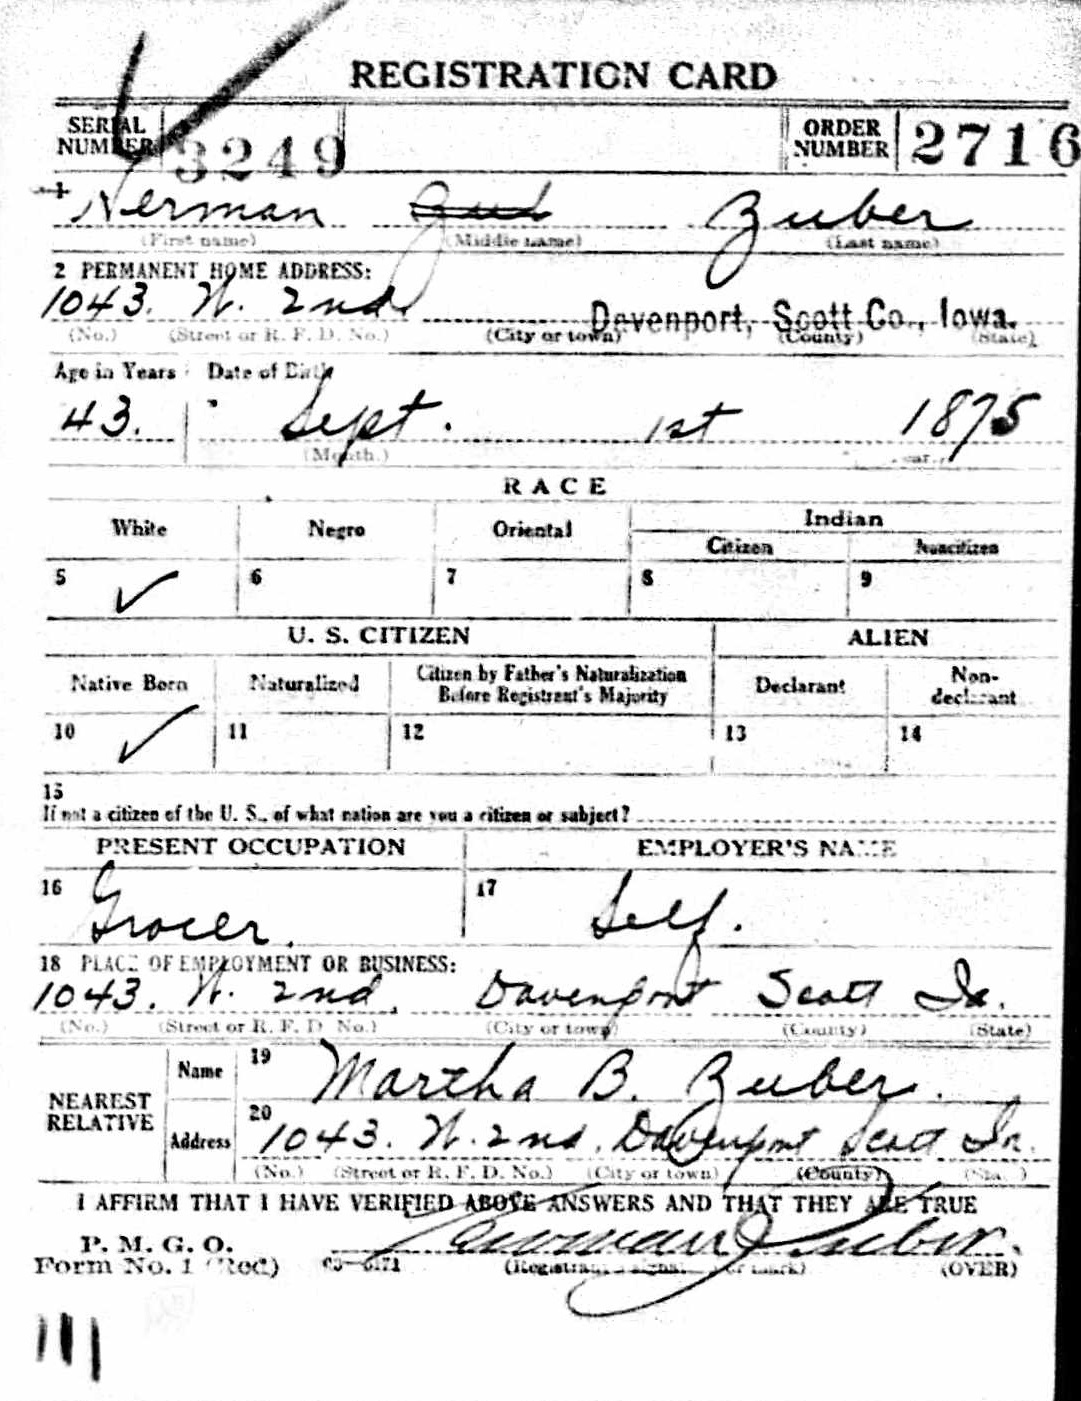 REGISTRATION CARD
SERIAL NUMBER 3249 ORDER NUMBER 2716
1 Herman Zuber
(First name) (Middle name) (Last name)
2 PERMANENT HOME ADDRESS:
1043. W. 2nd. Davenport, Scott Co., Iowa.
(No.) (Street or R. F. D. No.) (City or town) (County) (State)
Age in Years Date of Birth
43. Sept. 1st 1875
(Month.)
RACE
White Negro Oriental Indian
Citizen Noncitizen
5 ✓ 6 7 8 9
U. S. CITIZEN ALIEN
Native Born Naturalized Citizen by Father's Naturalization Before Registrant's Majority Declarant Non-declarant
10 ✓ 11 12 13 14
15
If not a citizen of the U. S., of what nation are you a citizen or subject?
PRESENT OCCUPATION EMPLOYER'S NAME
16 Grocer. 17 Self.
18 PLACE OF EMPLOYMENT OR BUSINESS:
1043. W. 2nd. Davenport Scott Ia.
(No.) (Street or R. F. D. No.) (City or town) (County) (State)
NEAREST RELATIVE Name 19 Martha B. Zuber.
Address 20 1043. W. 2nd. Davenport Scott Ia.
(No.) (Street or R. F. D. No.) (City or town) (County) (State)
I AFFIRM THAT I HAVE VERIFIED ABOVE ANSWERS AND THAT THEY ARE TRUE
P. M. G. O. Herman Zuber.
Form No. 1 (Red) 03—6171 (Registrant's signature or mark) (OVER)